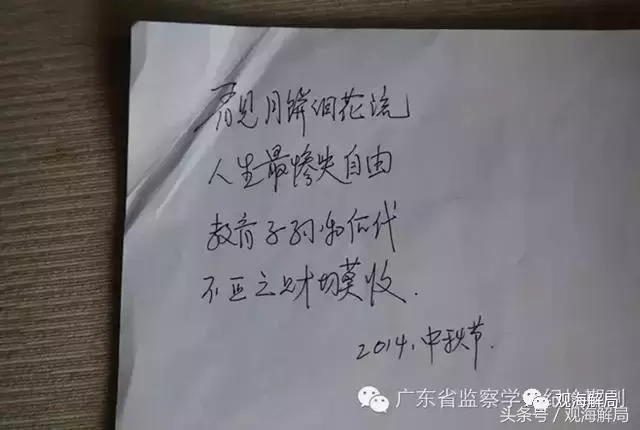 看见月饼泪花流
人生最惨失自由
教育子孙和后代
不正之财切莫收.
2014.中秋节.
广东省监察学
观海解局
头条号 / 观海解局